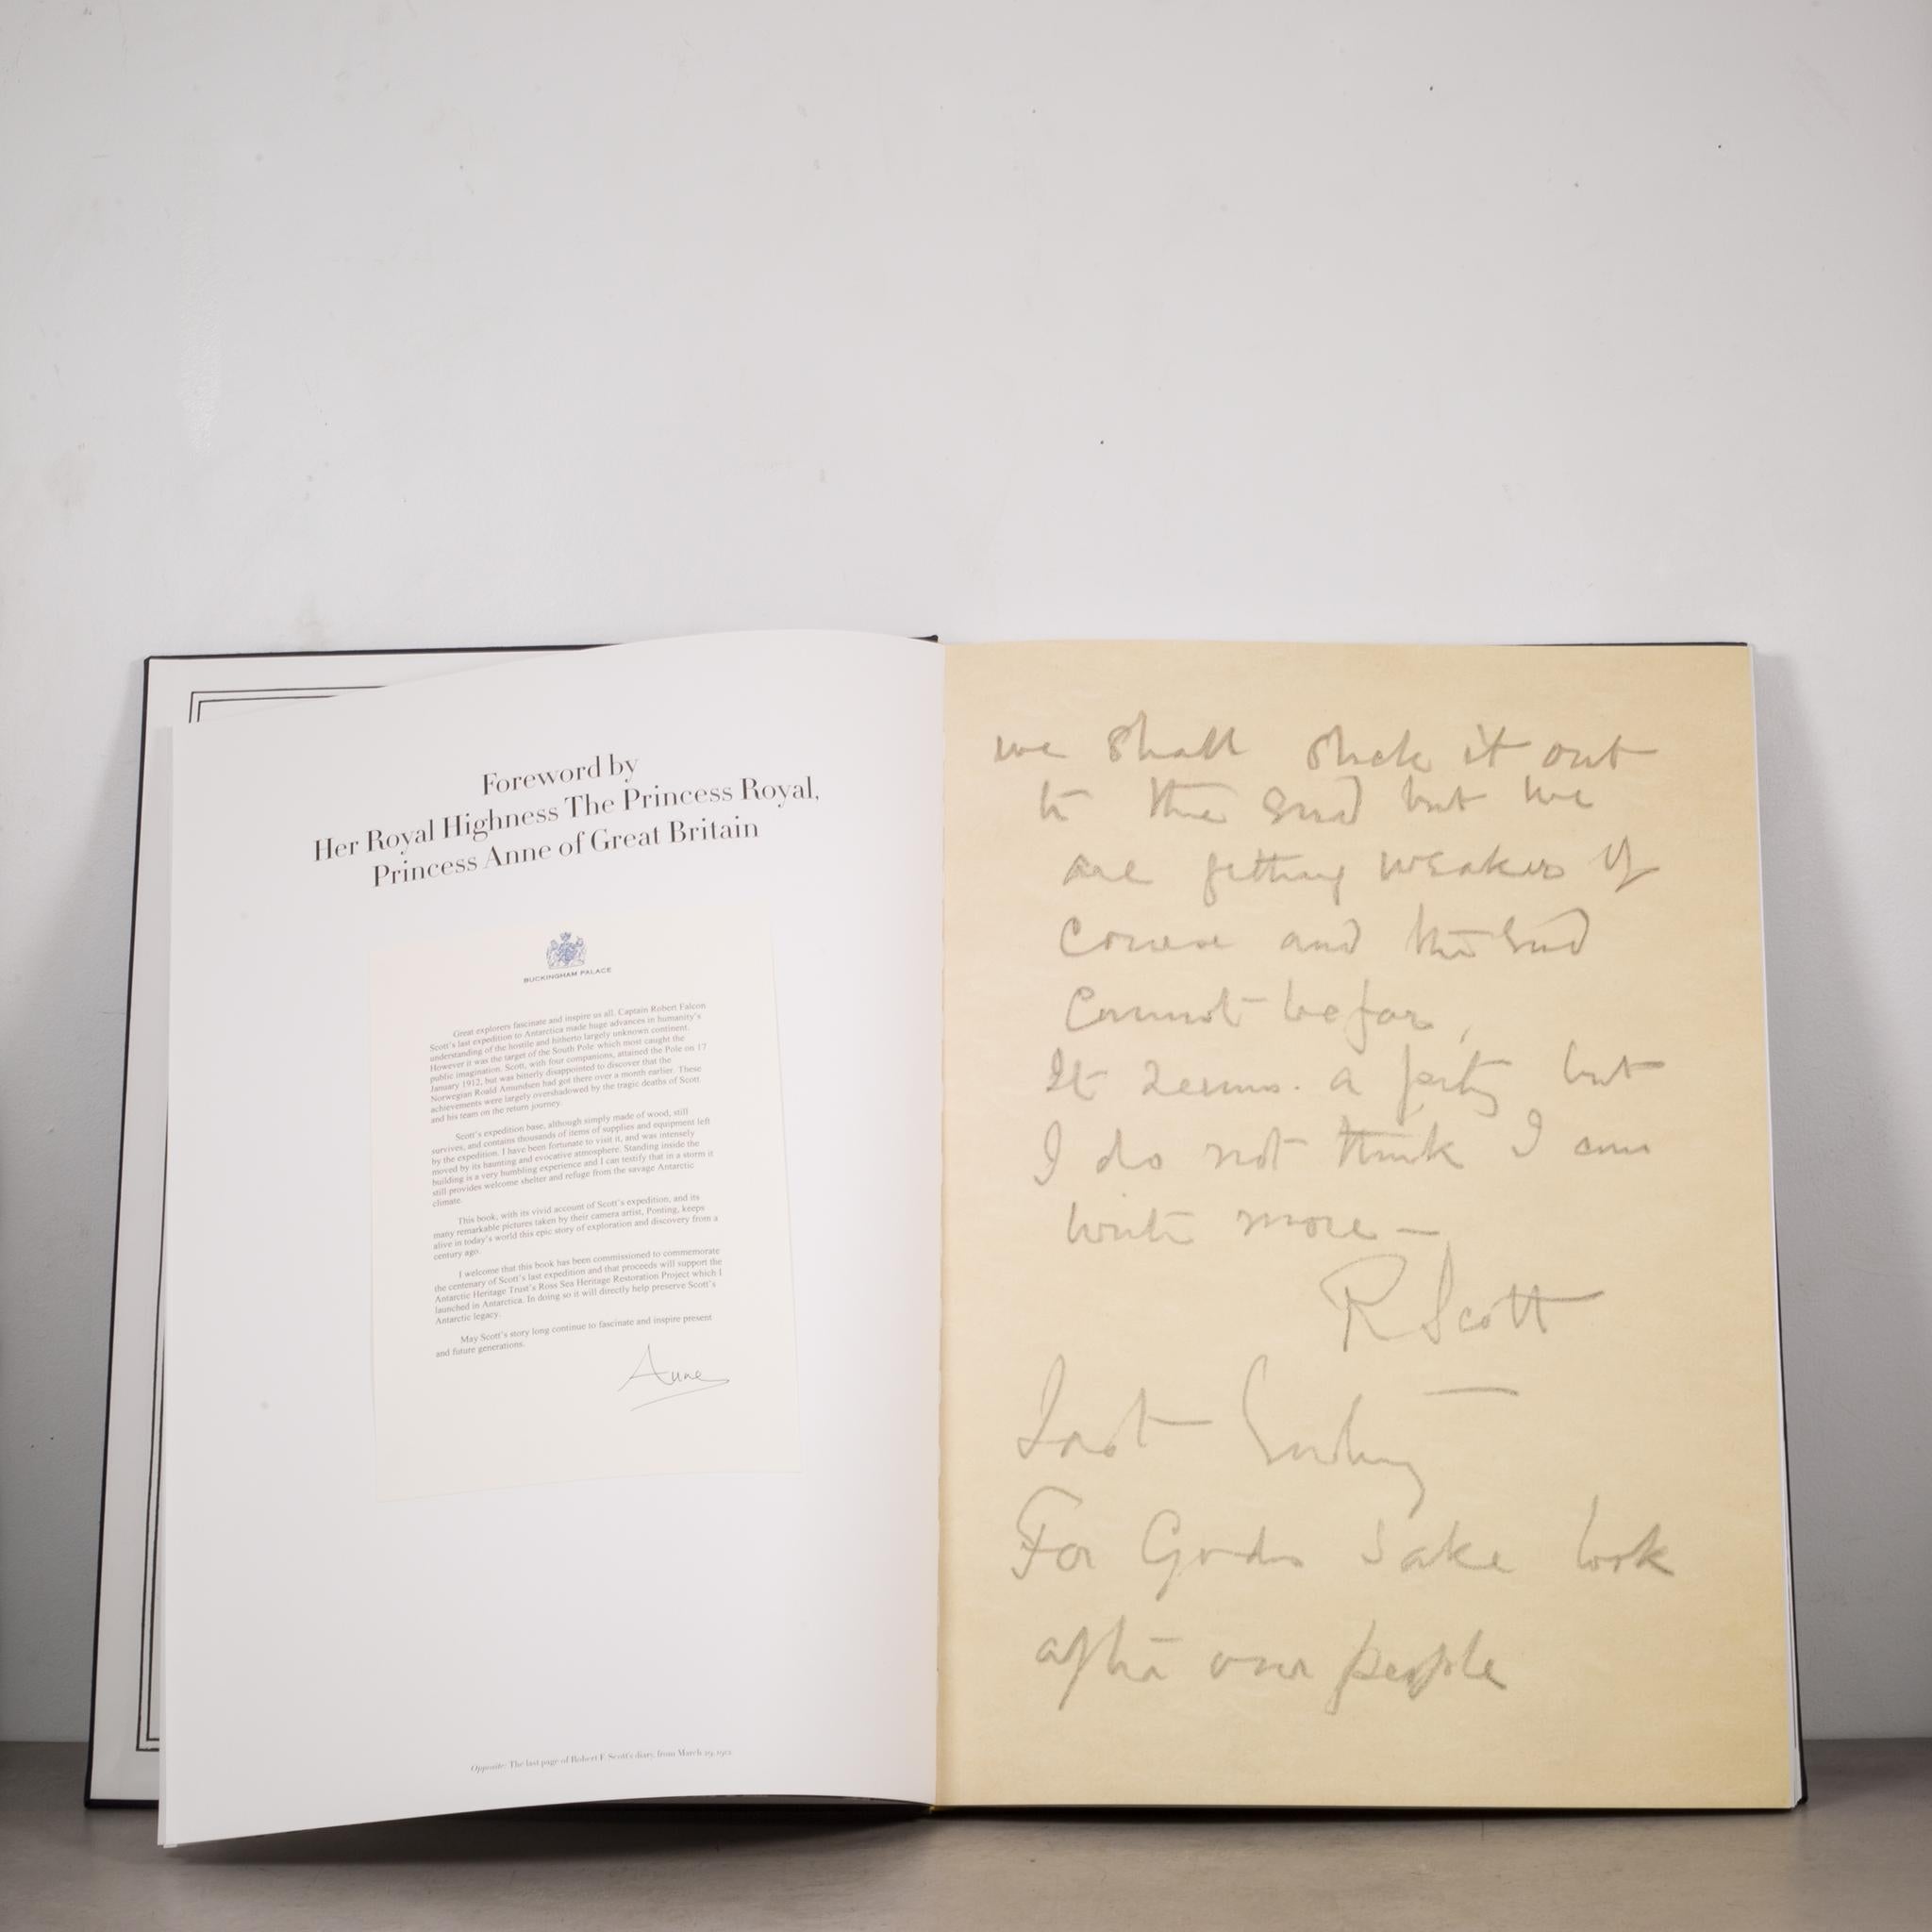 Foreword by
Her Royal Highness The Princess Royal,
Princess Anne of Great Britain
BUCKINGHAM PALACE
Great explorers fascinate and inspire us all. Captain Robert Falcon
Scott's last expedition to Antarctica made huge advances in humanity's
understanding of the hostile and hitherto largely unknown continent.
However it was the target of the South Pole which most caught the
public imagination. Scott, with four companions, attained the Pole on 17
January 1912, but was bitterly disappointed to discover that the
Norwegian Roald Amundsen had got there over a month earlier. These
achievements were largely overshadowed by the tragic deaths of Scott
and his team on the return journey.
Scott's expedition base, although simply made of wood, still
survives, and contains thousands of items of supplies and equipment left
by the expedition. I have been fortunate to visit it, and was intensely
moved by its haunting and evocative atmosphere. Standing inside the
building is a very humbling experience and I can testify that in a storm it
still provides welcome shelter and refuge from the savage Antarctic
climate.
This book, with its vivid account of Scott's expedition, and its
many remarkable pictures taken by their camera artist, Ponting, keeps
alive in today's world this epic story of exploration and discovery from a
century ago.
I welcome that this book has been commissioned to commemorate
the centenary of Scott's last expedition and that proceeds will support the
Antarctic Heritage Trust's Ross Sea Heritage Restoration Project which I
launched in Antarctica. In doing so it will directly help preserve Scott's
Antarctic legacy.
May Scott's story long continue to fascinate and inspire present
and future generations.
Anne
Opposite: The last page of Robert F. Scott's diary, from March 29, 1912
we shall stick it out
to the end but we
are getting weaker of
course and the end
cannot be far,
It seems a pity but
I do not think I can
write more —
R Scott
Last Entry
For Gods sake look
after our people